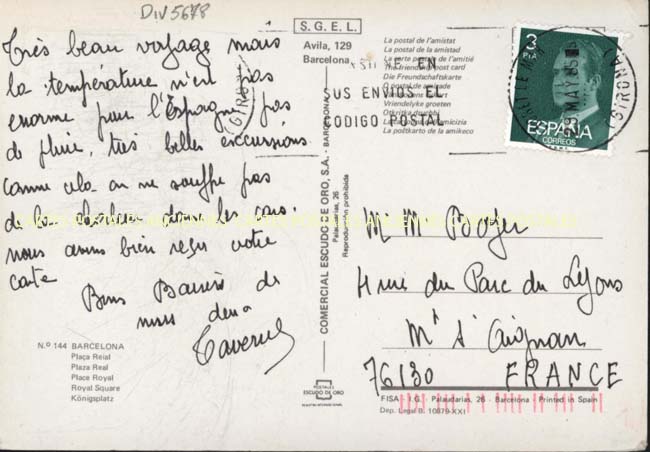 DIV5678
Très beau voyage mais
la température n'est pas
énorme pour l'Espagne, pas
de pluie, très belles excursions
comme cela on ne souffre pas
de la chaleur dans les cars.
nous avons bien reçu votre
carte
Bons Baisers de
nous deux
N.º 144 BARCELONA
Plaça Reial
Plaza Real
Place Royal
Royal Square
Königsplatz
S.G.E.L.
Avila, 129
Barcelona
COMERCIAL ESCUDO DE ORO, S.A. - BARCELONA
Palaudarias, 26
Reproducción prohibida
POSTALES
ESCUDO DE ORO
La postal de l'amistat
La postal de la amistad
La carte postale de l'amitié
The friendship post card
Die Freundschaftskarte
Vriendelyke groeten
La poŝtkarto de la amikeco
EN
SUS ENVIOS EL
CODIGO POSTAL
3
PTA
ESPAÑA
CORREOS
MAY
(GIRONA)
M. Mme
4 rue du Parc du Lyons
Mt St Aignan
76130 FRANCE
FISA I.G. Palaudarias, 26 - Barcelona Printed in Spain
Dep. Legal B. 10879-XXI